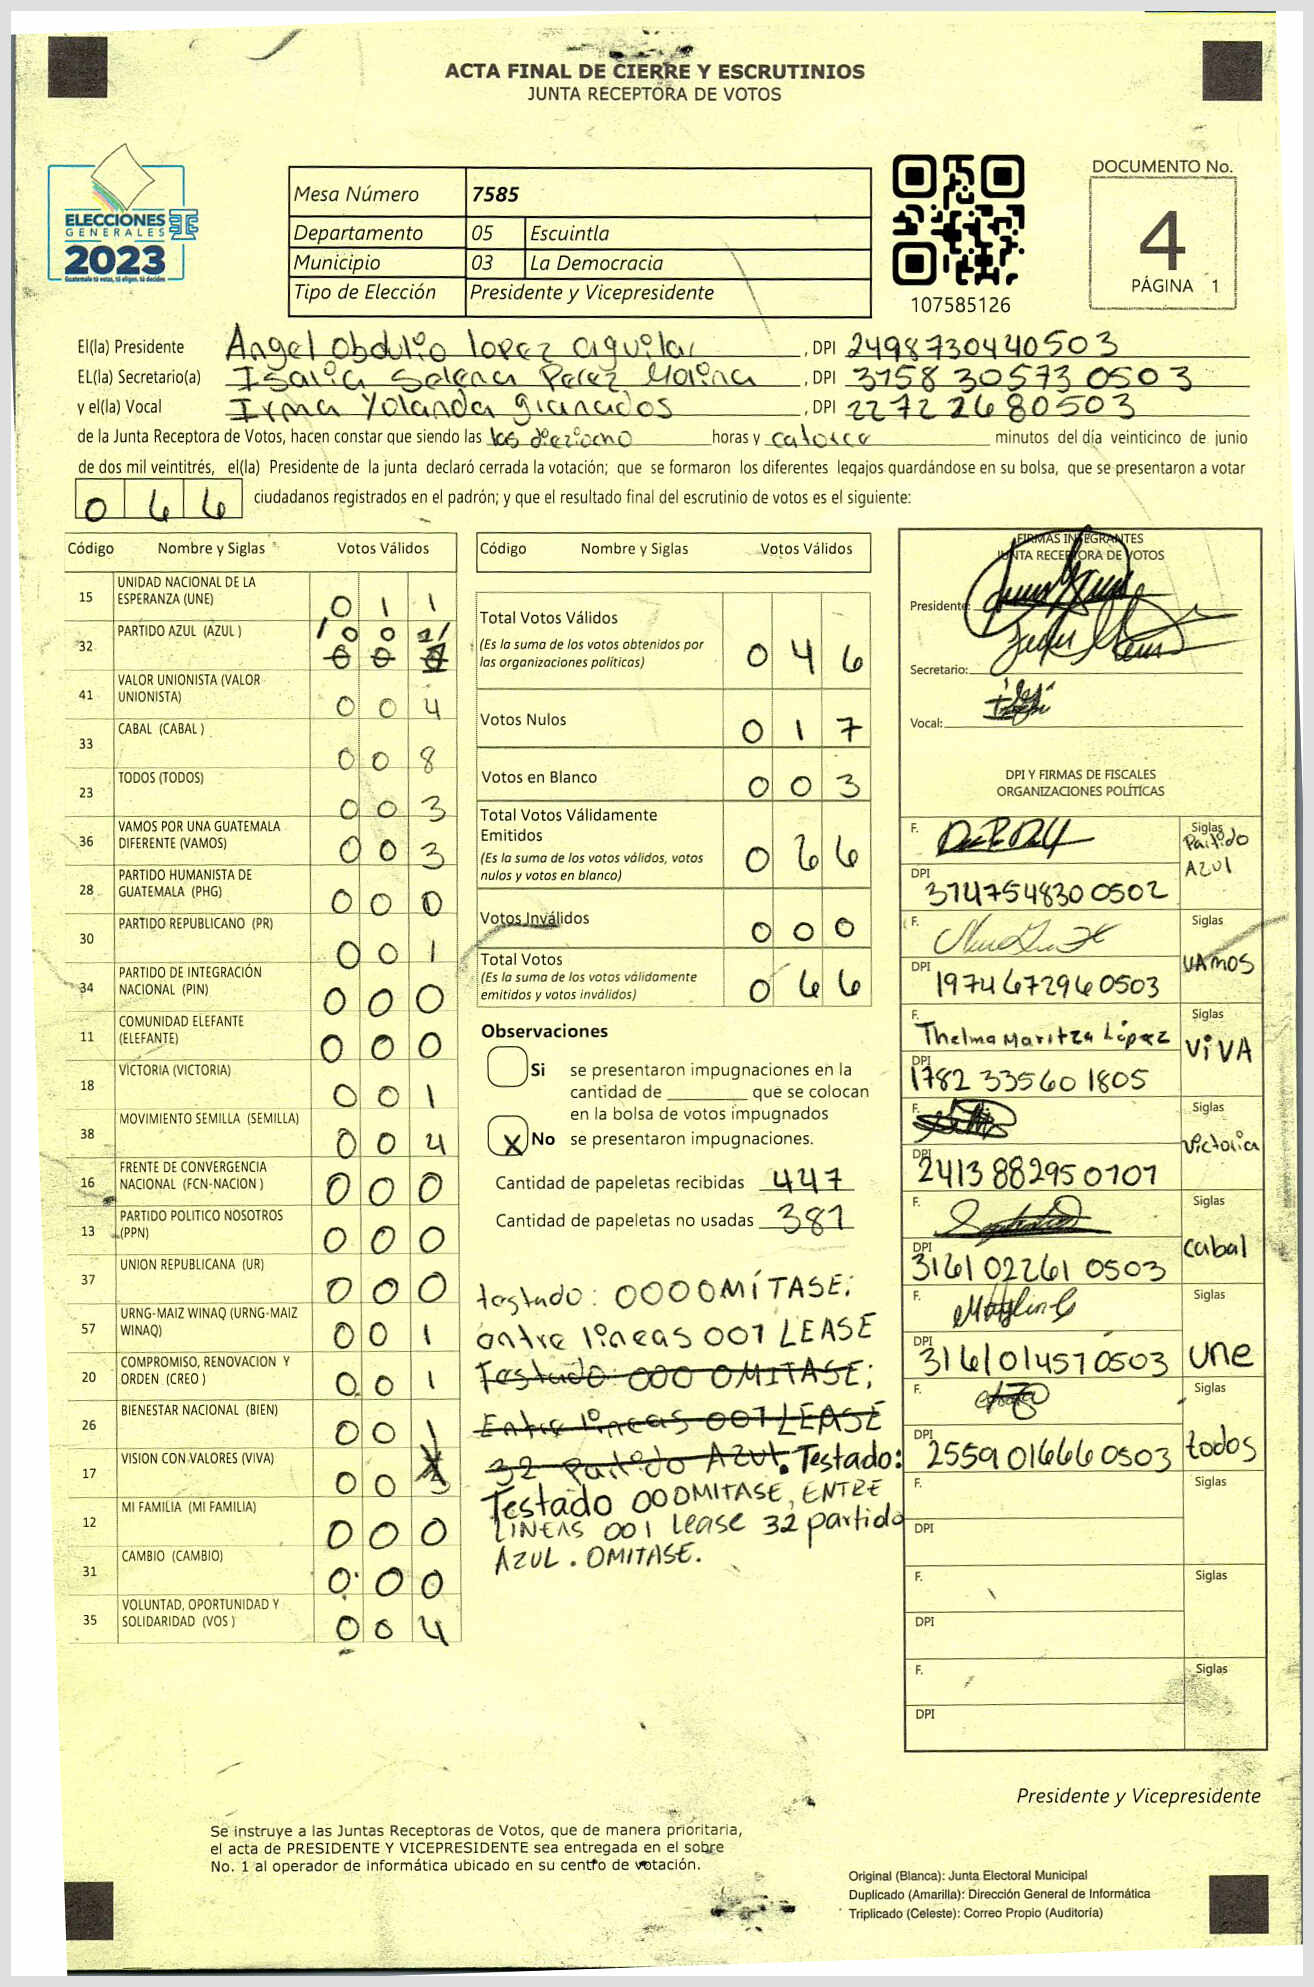 ACTA FINAL DE CIERRE Y ESCRUTINIOS
JUNTA RECEPTORA DE VOTOS
ELECCIONES
GENERALES
2023
Guatemala tú votas, tú eliges, tú decides
Mesa Número 7585
Departamento 05 Escuintla
Municipio 03 La Democracia
Tipo de Elección Presidente y Vicepresidente
107585126
DOCUMENTO No.
4
PÁGINA 1
El(la) Presidente Angel Obdulio lopez aguilar , DPI 2498730440503
EL(la) Secretario(a) Isavia Selena Perez Molina , DPI 3758 30573 0503
y el(la) Vocal Irma Yolanda granados , DPI 227222680503
de la Junta Receptora de Votos, hacen constar que siendo las las dieziocho horas y catorce minutos del día veinticinco de junio
de dos mil veintitrés, el(la) Presidente de la junta declaró cerrada la votación; que se formaron los diferentes legajos guardándose en su bolsa, que se presentaron a votar
066 ciudadanos registrados en el padrón; y que el resultado final del escrutinio de votos es el siguiente:
Código Nombre y Siglas Votos Válidos
15 UNIDAD NACIONAL DE LA ESPERANZA (UNE) 0 1 1
32 PARTIDO AZUL (AZUL ) 0 0 1
41 VALOR UNIONISTA (VALOR UNIONISTA) 0 0 4
33 CABAL (CABAL ) 0 0 8
23 TODOS (TODOS) 0 0 3
36 VAMOS POR UNA GUATEMALA DIFERENTE (VAMOS) 0 0 3
28 PARTIDO HUMANISTA DE GUATEMALA (PHG) 0 0 0
30 PARTIDO REPUBLICANO (PR) 0 0 1
34 PARTIDO DE INTEGRACIÓN NACIONAL (PIN) 0 0 0
11 COMUNIDAD ELEFANTE (ELEFANTE) 0 0 0
18 VICTORIA (VICTORIA) 0 0 1
38 MOVIMIENTO SEMILLA (SEMILLA) 0 0 4
16 FRENTE DE CONVERGENCIA NACIONAL (FCN-NACION ) 0 0 0
13 PARTIDO POLITICO NOSOTROS (PPN) 0 0 0
37 UNION REPUBLICANA (UR) 0 0 0
57 URNG-MAIZ WINAQ (URNG-MAIZ WINAQ) 0 0 1
20 COMPROMISO, RENOVACION Y ORDEN (CREO ) 0 0 1
26 BIENESTAR NACIONAL (BIEN) 0 0 1
17 VISION CON VALORES (VIVA) 0 0 3
12 MI FAMILIA (MI FAMILIA) 0 0 0
31 CAMBIO (CAMBIO) 0 0 0
35 VOLUNTAD, OPORTUNIDAD Y SOLIDARIDAD (VOS ) 0 0 4
Código Nombre y Siglas Votos Válidos
Total Votos Válidos
(Es la suma de los votos obtenidos por
las organizaciones políticas) 0 4 6
Votos Nulos 0 1 7
Votos en Blanco 0 0 3
Total Votos Válidamente
Emitidos
(Es la suma de los votos válidos, votos
nulos y votos en blanco) 0 6 6
Votos Inválidos 0 0 0
Total Votos
(Es la suma de los votos válidamente
emitidos y votos inválidos) 0 6 6
Observaciones
Si se presentaron impugnaciones en la
cantidad de ________ que se colocan
en la bolsa de votos impugnados
X No se presentaron impugnaciones.
Cantidad de papeletas recibidas 447
Cantidad de papeletas no usadas 381
testado: 0000MÍTASE;
entre lineas 001 LEASE
Testado: 000 OMITASE;
Entre lineas 001 LEASE
32 Partido AZUL. Testado:
Testado 000MITASE, ENTRE
LINEAS 001 Lease 32 partido
AZUL . OMITASE.
FIRMAS INTEGRANTES
JUNTA RECEPTORA DE VOTOS
Presidente:
Secretario:
Vocal:
DPI Y FIRMAS DE FISCALES
ORGANIZACIONES POLÍTICAS
F. Siglas Partido AZUL
DPI 3747548300502
F. Siglas VAMOS
DPI 1974672960503
F. Thelma Maritza López Siglas ViVA
DPI 1782 33560 1805
F. Siglas Victoria
DPI 2413 88295 0707
F. Siglas cabal
DPI 3161 02261 0503
F. Siglas une
DPI 3161014570503
F. Siglas todos
DPI 2559016660503
F. Siglas
DPI
F. Siglas
DPI
F. Siglas
DPI
Presidente y Vicepresidente
Se instruye a las Juntas Receptoras de Votos, que de manera prioritaria,
el acta de PRESIDENTE Y VICEPRESIDENTE sea entregada en el sobre
No. 1 al operador de informática ubicado en su centro de votación.
Original (Blanca): Junta Electoral Municipal
Duplicado (Amarilla): Dirección General de Informática
Triplicado (Celeste): Correo Propio (Auditoría)